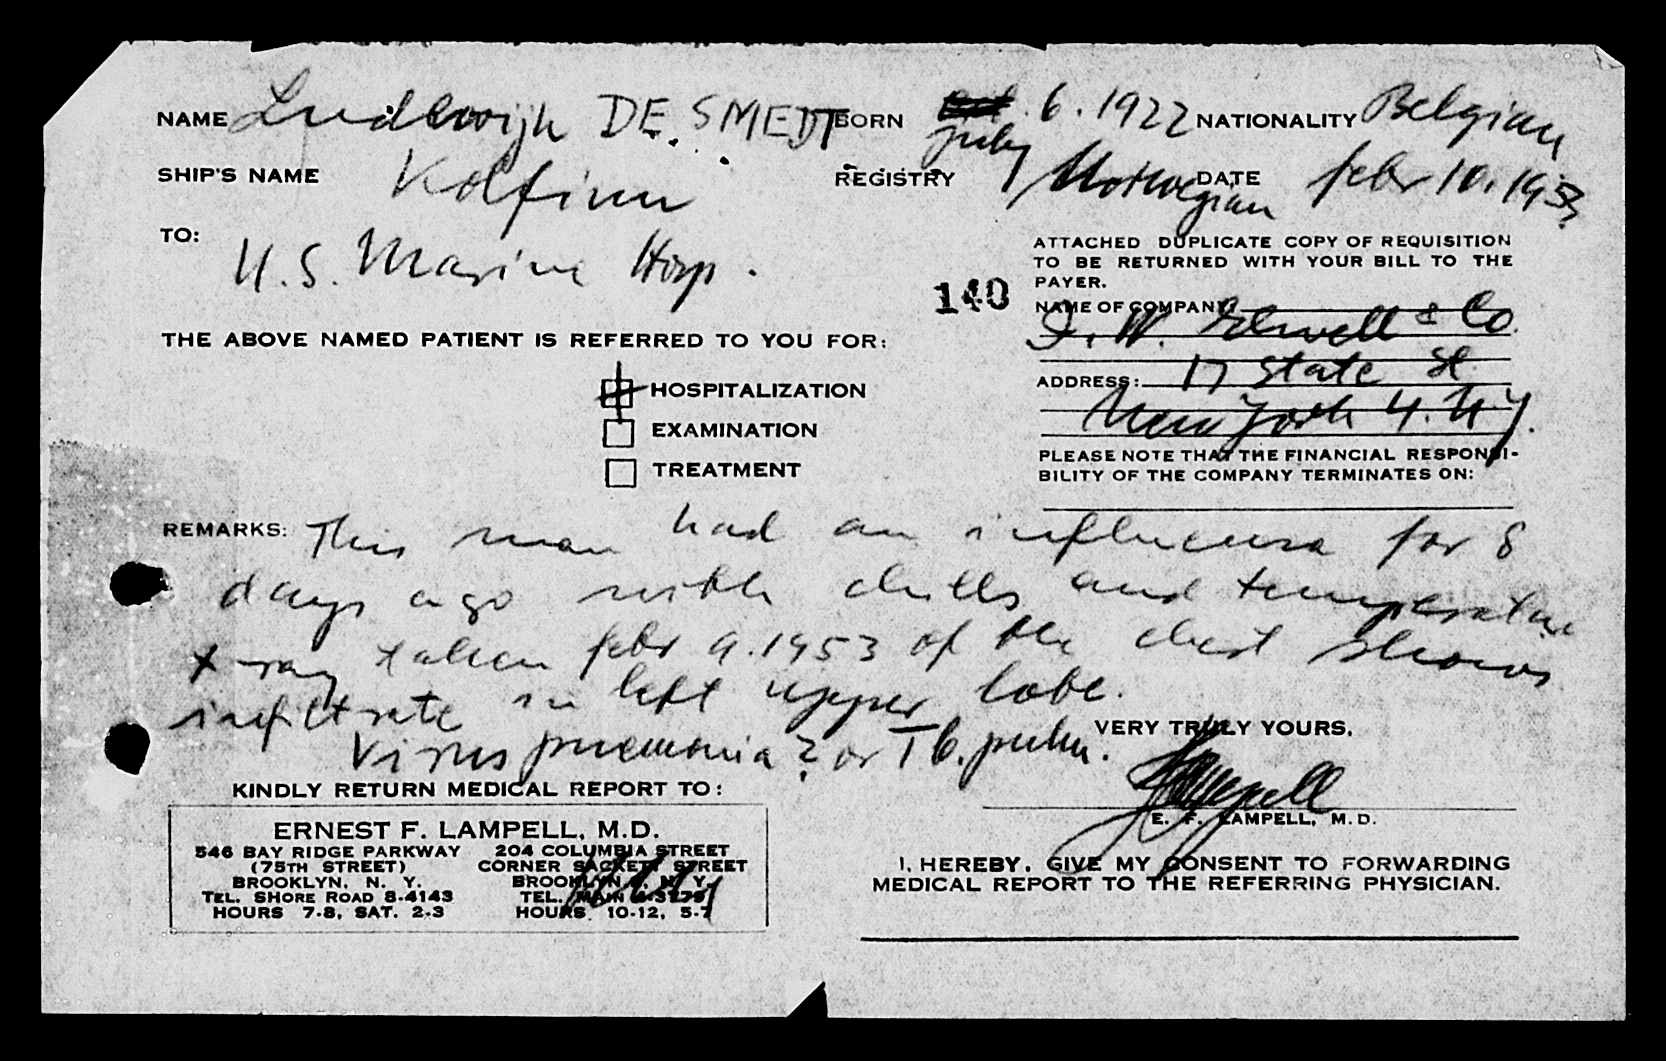 NAME Ludewijk DE SMEDT BORN July 6. 1922 NATIONALITY Belgian
SHIP'S NAME Kolfinn REGISTRY Norwegian DATE febr 10. 1953
TO: U.S. Marine Hosp.
ATTACHED DUPLICATE COPY OF REQUISITION
TO BE RETURNED WITH YOUR BILL TO THE
PAYER.
140
NAME OF COMPANY
J. W. Elwell & Co.
THE ABOVE NAMED PATIENT IS REFERRED TO YOU FOR:
HOSPITALIZATION
EXAMINATION
TREATMENT
ADDRESS: 17 State St
New York 4. N.Y.
PLEASE NOTE THAT THE FINANCIAL RESPONSI-
BILITY OF THE COMPANY TERMINATES ON:
REMARKS: This man had an influenza for 8
days ago with chills and temperature
X-ray taken febr 9. 1953 of the chest shows
infiltrate in left upper lobe.
Virus pneumonia? or Tb. pulm.
VERY TRULY YOURS,
Lampell
E. F. LAMPELL, M.D.
KINDLY RETURN MEDICAL REPORT TO:
ERNEST F. LAMPELL, M.D.
546 BAY RIDGE PARKWAY
(75TH STREET)
BROOKLYN, N. Y.
TEL. SHORE ROAD 8-4143
HOURS 7-8, SAT. 2-3
204 COLUMBIA STREET
CORNER SACKETT STREET
BROOKLYN N. Y.
TEL. MAIN
HOURS 10-12, 5-7
I, HEREBY, GIVE MY CONSENT TO FORWARDING
MEDICAL REPORT TO THE REFERRING PHYSICIAN.